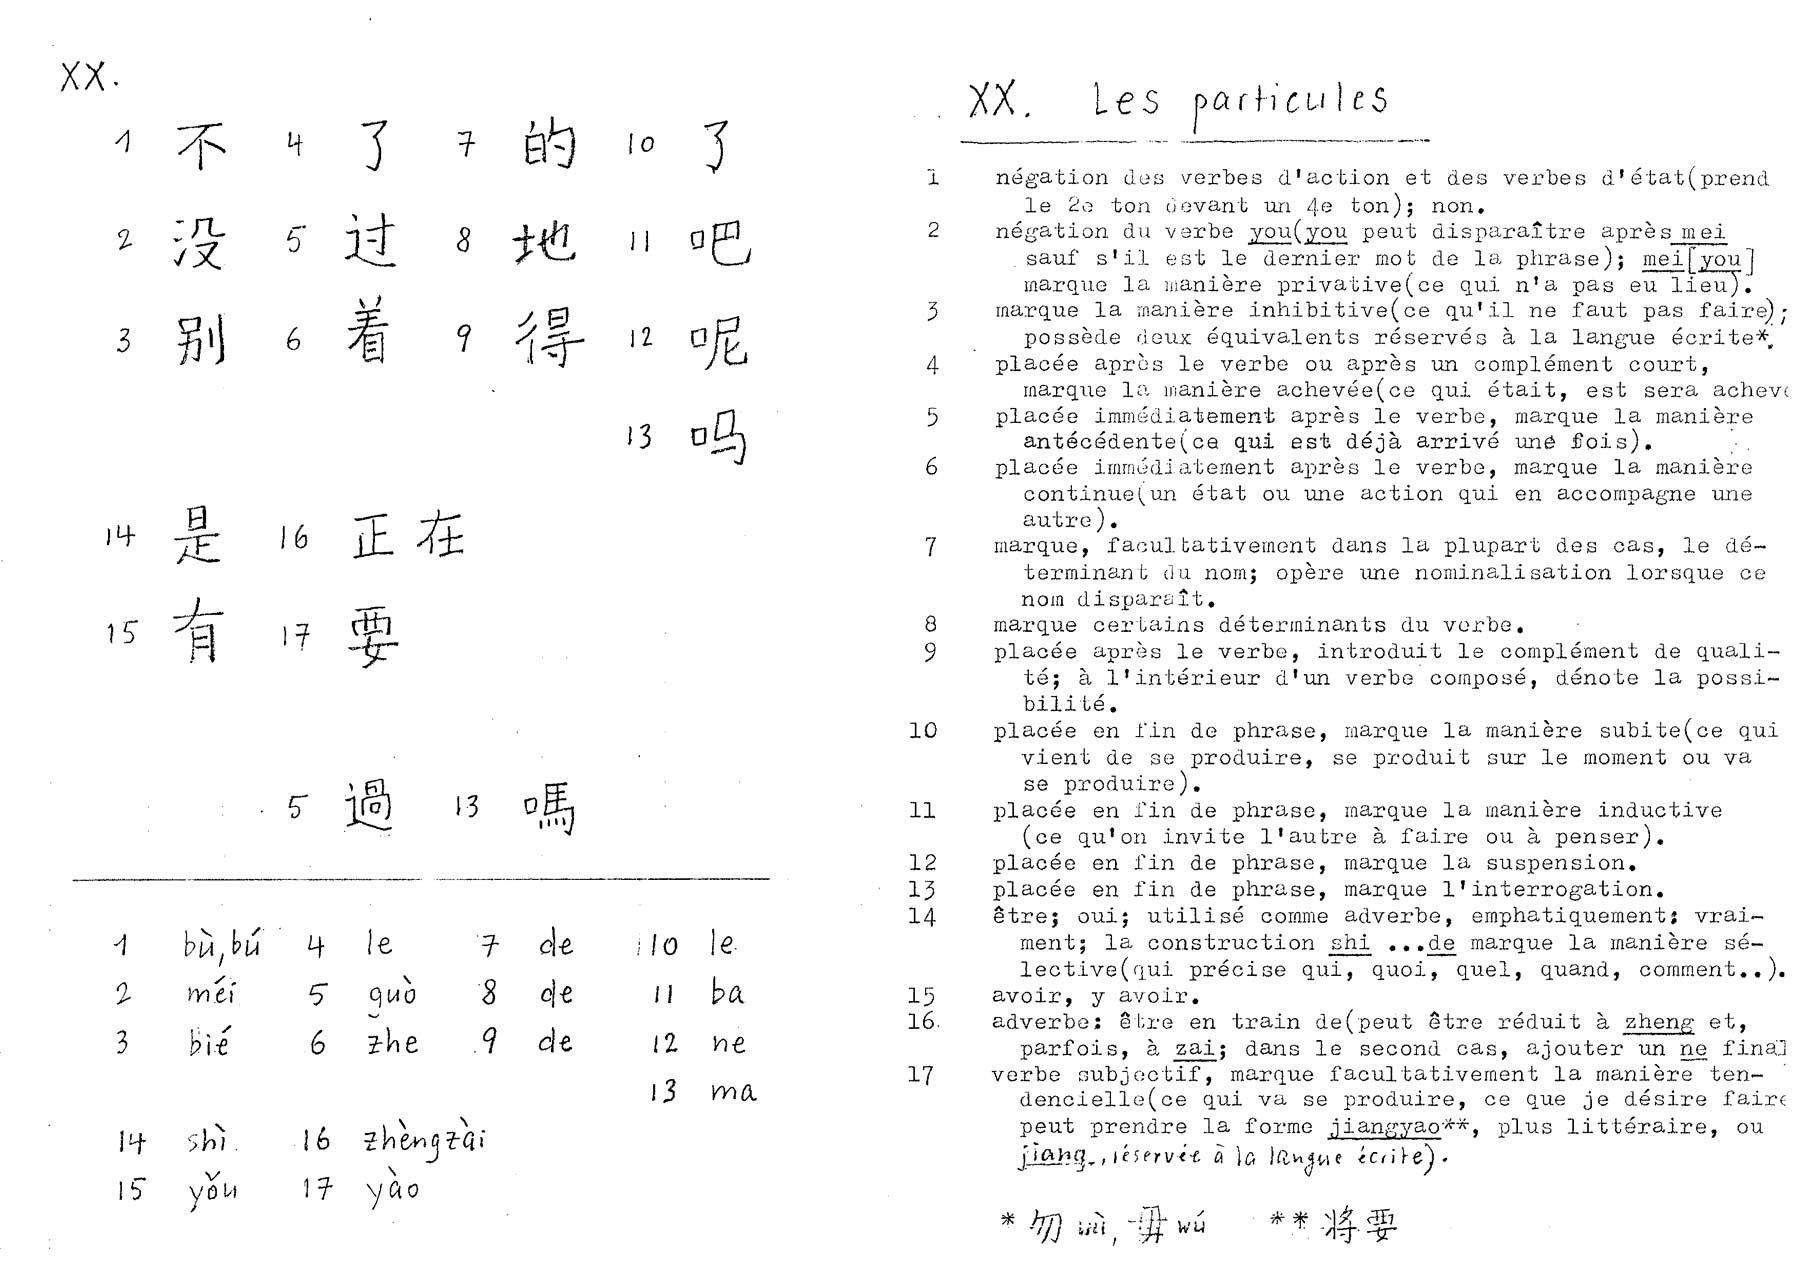 XX.
1 不 4 了 7 的 10 了
2 没 5 过 8 地 11 吧
3 别 6 着 9 得 12 呢
13 吗
14 是 16 正在
15 有 17 要
5 過 13 嗎
1 bù, bú 4 le 7 de 10 le
2 méi 5 guò 8 de 11 ba
3 bié 6 zhe 9 de 12 ne
13 ma
14 shì 16 zhèngzài
15 yǒu 17 yào
XX. Les particules
1 négation des verbes d'action et des verbes d'état(prend
le 2e ton devant un 4e ton); non.
2 négation du verbe you(you peut disparaître après mei
sauf s'il est le dernier mot de la phrase); mei[you]
marque la manière privative(ce qui n'a pas eu lieu).
3 marque la manière inhibitive(ce qu'il ne faut pas faire);
possède deux équivalents réservés à la langue écrite*.
4 placée après le verbe ou après un complément court,
marque la manière achevée(ce qui était, est sera achevé
5 placée immédiatement après le verbe, marque la manière
antécédente(ce qui est déjà arrivé une fois).
6 placée immédiatement après le verbe, marque la manière
continue(un état ou une action qui en accompagne une
autre).
7 marque, facultativement dans la plupart des cas, le dé-
terminant du nom; opère une nominalisation lorsque ce
nom disparaît.
8 marque certains déterminants du verbe.
9 placée après le verbe, introduit le complément de quali-
té; à l'intérieur d'un verbe composé, dénote la possi-
bilité.
10 placée en fin de phrase, marque la manière subite(ce qui
vient de se produire, se produit sur le moment ou va
se produire).
11 placée en fin de phrase, marque la manière inductive
(ce qu'on invite l'autre à faire ou à penser).
12 placée en fin de phrase, marque la suspension.
13 placée en fin de phrase, marque l'interrogation.
14 être; oui; utilisé comme adverbe, emphatiquement: vrai-
ment; la construction shi ...de marque la manière sé-
lective(qui précise qui, quoi, quel, quand, comment..).
15 avoir, y avoir.
16. adverbe: être en train de(peut être réduit à zheng et,
parfois, à zai; dans le second cas, ajouter un ne final
17 verbe subjectif, marque facultativement la manière ten-
dencielle(ce qui va se produire, ce que je désire faire
peut prendre la forme jiangyao**, plus littéraire, ou
jiang, réservée à la langue écrite).
* 勿 wù, 毋 wú ** 将要